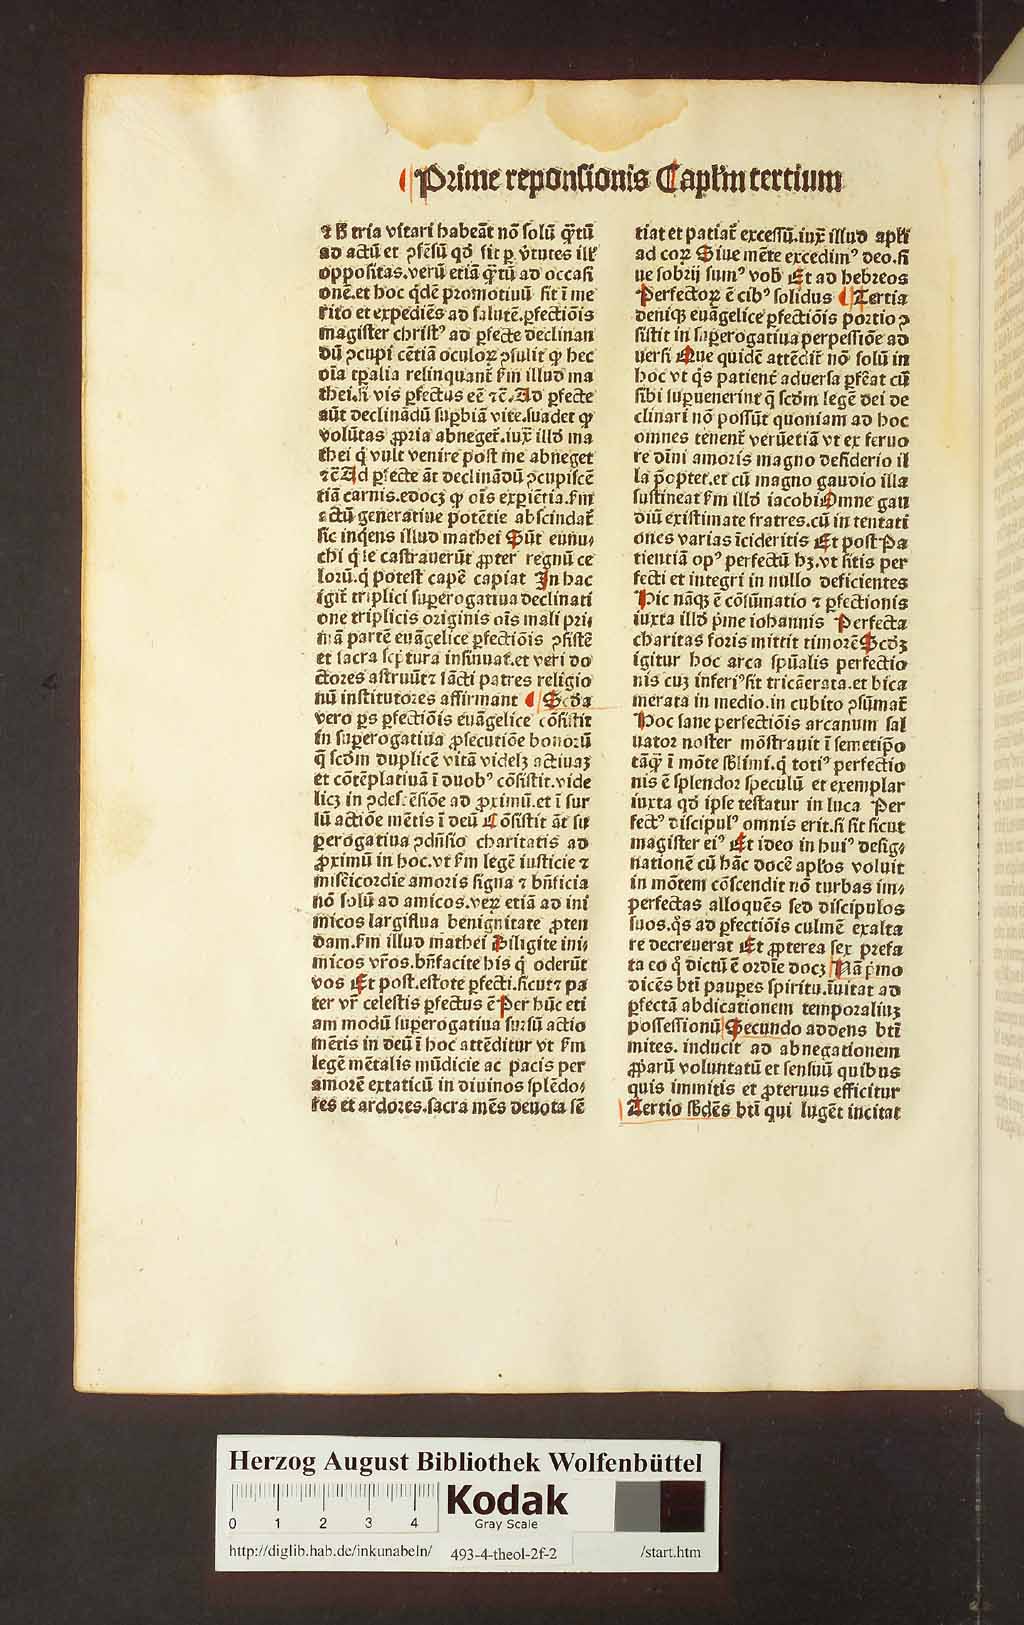 Prime reponsionis Capl'm tertium
⁊ hͦ tria vitari habeāt nō solū q̄tū
ad actū et ꝯsēsū qđ fit ꝑ v̓tutes ill'
oppositas.verū etiā q̄tū ad occasi
onē.et hoc q̓dē promotiuū fit ī me
rito et expediēs ad salutē.ꝑfectiōis
magister christꝰ ad ꝑfecte declinan
dū ꝯcupi cētiā oculoꝝ ꝯsulit ꝙ hec
oīa tꝑalia relinquant̄ ẜm illud ma
thei.si vis ꝑfectus eē ⁊c̄.Ad ꝑfecte
aūt declinādū suꝑbiā vite.suadet ꝙ
volūtas ꝓpria abneget̄.iux̄ illđ ma
thei q̓ vult venire post me abneget
⁊c̄ Ad ꝑfecte āt declinādū ꝯcupiscē
tiā carnis.edocꝫ ꝙ oīs exꝑiētia.ẜm
actū generatiue potētie abscindat̄
sic inq̓ens illud mathei Sūt eunu⸗
chi q̓ se castrauerūt ꝓpter regnū ce
lorū.q̓ potest capē capiat In hac
igit̄ triplici suꝑerogatiua declinati
one triplicis originis oīs mali pri⸗
mā partē euāgelice ꝑfectiōis ꝯsistē
et sacra scptura insinuat.et veri do
ctores astruūt⁊ sācti patres religio
nū institutores affirmant Scđa
vero ps ꝑfectiōis euāgelice cōsistit
in suꝑerogatiua ꝓsecutiōe bonorū
q̄ scđm duplicē vitā videlꝫ actiuaꝫ
et cōtēplatiuā ī duobꝰ cōsistit.vide
licꝫ in ꝯdescēsiōe ad ꝓximū.et ī sur
sū actiōe mētis ī deū Cōsistit āt su
perogatiua ꝯdn̄sio charitatis ad
ꝓximū in hoc.vt ẜm legē iusticie ⁊
misēicordie amoris signa ⁊ bn̄ficia
nō solū ad amicos.veꝝ etiā ad ini
micos largiflua benignitate ꝓten
dam.ẜm illud mathei Diligite ini⸗
micos vr̄os.bn̄facite his q̓ oderūt
vos Et post.estote ꝑfecti.sicut⁊ pa
ter vr̄ celestis ꝑfectus ē Per hūc eti
am modū suꝑerogatiua sursū actio
mētis in deū ī hoc attēditur vt ẜm
legē mētalis mūdicie ac pacis per
amorē extaticū in diuinos splēdo⸗
res et ardores.sacra mēs deuota sē
tiat et patiat̄ excessū.iux̄ illud apl'i
ad coꝝ Siue mēte excedimꝰ deo.si
ue sobrij sumꝰ vob̓ Et ad hebreos
Perfectoꝝ ē cibꝰ solidus Tertia
deniqꝫ euāgelice ꝑfectiōis portio ꝯ
sistit in suꝑerogatiua perpessiōe ad
uersi Que quidē attēdit̄ nō solū in
hoc vt q̓s patient̄ aduersa ꝑferat cū
sibi supuenerint q̄ scđm legē dei de
clinari nō possūt quoniam ad hoc
omnes tenent̄ verūetiā vt ex feruo
re dīni amoris magno desiderio il
la p̄optet.et cū magno gaudio illa
sustineat ẜm illđ iacobi Omne gau
diū existimate fratres.cū in tentati
ones varias īcideritis Et post Pa
tientiā opꝰ perfectū hꝫ.vt sitis per
fecti et integri in nullo deficientes
Hic nāqꝫ ē cōsūmatio ⁊ ꝑfectionis
iuxta illđ p̄me iohannis Perfecta
charitas foris mittit timorē Scđꝫ
igitur hoc arca spūalis perfectio
nis cuꝫ inferiꝰ sit tricāerata.et bica
merata in medio.in cubito ꝯsūmat̄
Hoc sane perfectiōis arcanum sal
uator noster mōstrauit ī semetip̄o
tāq̄ ī mōte sb̄limi.q̓ totiꝰ perfectio
nis ē splendor speculū et exemplar
iuxta qđ ipse testatur in luca Per
fectꝰ discipulꝰ omnis erit.si sit sicut
magister eiꝰ Et ideo in huiꝰ desig⸗
nationē cū hāc docē apl'os voluit
in mōtem cōscendit nō turbas im⸗
perfectas alloquēs sed discipulos
suos.q̓s ad ꝑfectiōis culmē exalta
re decreuerat Et ꝓpterea sex prefa
ta eo q̓ dictū ē ordīe docꝫ Nā p̄mo
dicēs bt̄i pauꝑes spiritu.īuitat ad
ꝑfectā abdicationem temporaliuꝫ
possessionū Secundo addens bt̄i
mites. inducit ad abnegationem
ꝓpriarū voluntatū et sensuū quibus
quis immitis et ꝓteruus efficitur
Tertio sb̄dēs bt̄i qui lugēt incitat
Herzog August Bibliothek Wolfenbüttel
0 1 2 3 4
Kodak
Gray Scale
http://diglib.hab.de/inkunabeln/ 493-4-theol-2f-2 /start.htm